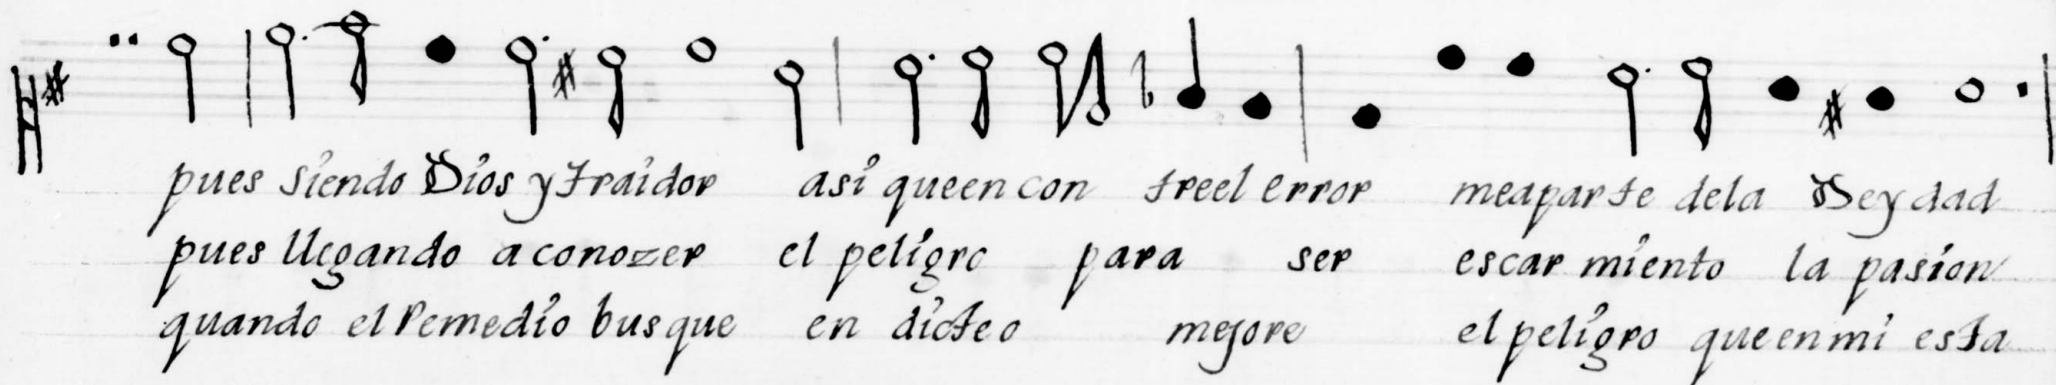 pues siendo Dios y traidor así queencon treel error meaparte dela Deydad
pues llegando aconozer el peligro para ser escarmiento la pasion
quando elremedio busque en dicteo mejore elpeligro queenmi esta